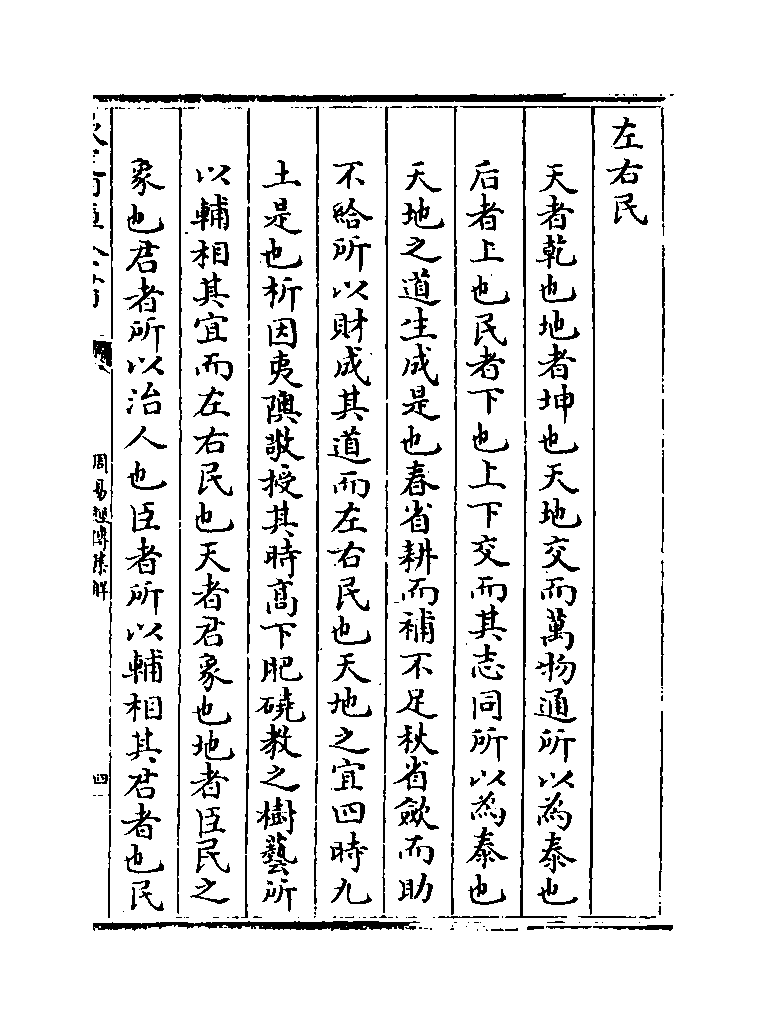 左右民
天者乾也地者坤也天地交而萬物通所以為泰也
后者上也民者下也上下交而其志同所以為泰也
天地之道生成是也春省耕而補不足秋省歛而助
不給所以財成其道而左右民也天地之宜四時九
土是也析因夷隩敬授其時髙下肥磽教之樹藝所
以輔相其宜而左右民也天者君象也地者臣民之
象也君者所以治人也臣者所以輔相其君者也民
周易經傳集解
四